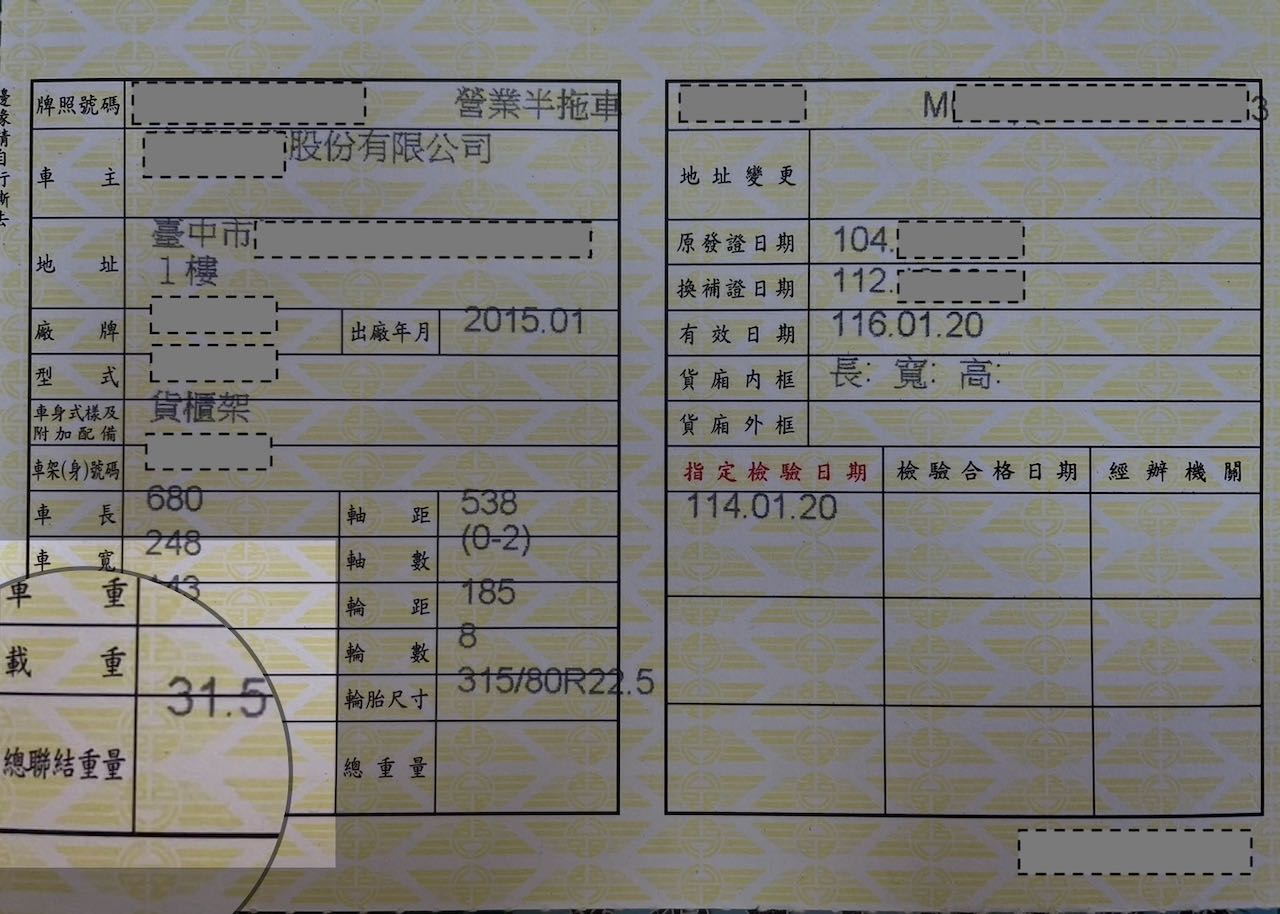 邊緣請自行撕去
牌照號碼 營業半拖車
車主 股份有限公司
地址 臺中市
1樓
廠牌 出廠年月 2015.01
型式
車身式樣及附加配備 貨櫃架
車架(身)號碼
車長 680 軸距 538
車寬 248 軸數 (0-2)
143 輪距 185
輪數 8
輪胎尺寸 315/80R22.5
總重量
車重
載重
總聯結重量 31.5
M 3
地址變更
原發證日期 104.
換補證日期 112.
有效日期 116.01.20
貨廂內框 長: 寬: 高:
貨廂外框
指定檢驗日期 檢驗合格日期 經辦機關
114.01.20